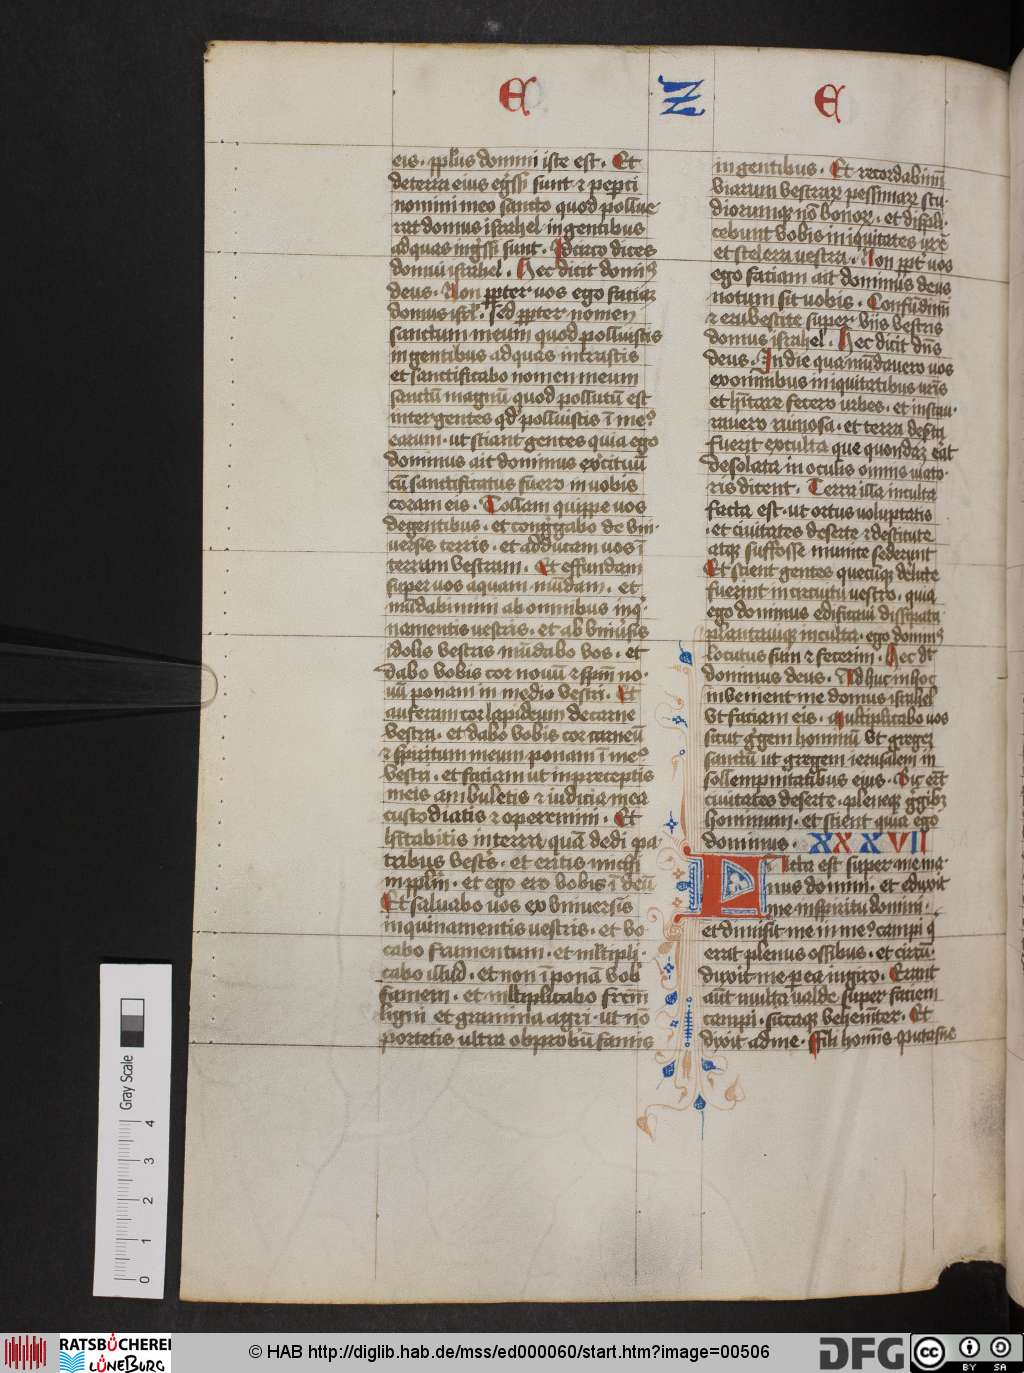 E Z E
eis · pplus domini iste est · Et
de terra eius egssi sunt ⁊ pepci
nomini meo sancto quod pollue
rat domus israhel in gentibus
ad quas ingssi sunt · Idcirco dices
domui israhel · Hec dicit dominꝰ
deus · Non ppter uos ego faciā
domus isrl · sed ppter nomen
sanctum meum quod polluistis
in gentibus ad quas intrastis
et sanctificabo nomen meum
sanctū magnū quod pollutū est
inter gentes qd polluistis ī meꝰ
earum · ut sciant gentes quia ego
dominus ait dominus excituū
cū sanctificatus fuero in uobis
coram eis · Tollam quippe uos
de gentibus · et congģabo de vni
uersis terris · et adducam uos ī
terram vestram · Et effundam
super uos aquam mūdam · et
mūdabimini ab omnibus inq
namentis uestris · et ab vniūsis
idolis vestris mūdabo vos · et
dabo vobis cor nouū ⁊ spm̄ no
uū ponam in medio vestri · Et
auferam cor lapideum de carne
vestra · et dabo vobis cor carneū
⁊ spiritum meum ponam ī meꝰ
vestri · et faciam ut in preceptis
meis ambuletis ⁊ iudicia mea
custodiatis ⁊ operemini · Et
hītabitis in terra quā dedi pa
tribus vestris · et eritis michi
in pplm̄ · et ego ero vobis ī deū
Et saluabo uos ex vniuersis
inquinamentis uestris · et vo
cabo frumentum · et mltipli
cabo illud · et non īponā vob
famem · et mltiplicabo frcm̄
ligni et gramina agri · ut nō
portetis ultra obprobrū famis
in gentibus · Et recordabimī
viarum vestrarꝝ pessimarꝝ stu
diorumqꝫ nō bonorꝝ · et displi
cebunt vobis iniquitates vrē
et scelera vestra · Non ppt uos
ego faciam ait dominus deus
notum sit uobis · Confūdimī
⁊ erubescite super viis vestris
domus israhel · Hec dicit dn̄s
deus · In die qua mūdauero uos
ex omnibus iniquitatibus vrīs
et hītare fecero urbes · et instau
rauero ruinosa · et terra deserta
fuerit exculta que quondā erāt
desolata in oculis omnis uiato
ris dicent · Terra illa inculta
facta est · ut ortus voluptatis
· et ciuitates deserte ⁊ destitute
atqꝫ suffosse munite sederunt
Et scient gentes quecūqꝫ derelicte
fuerint in circuitu uestro · quia
ego dominus edificaui dissipata
plantauiqꝫ inculta · ego dominꝰ
locutus sum ⁊ fecerim · Hec dt
dominus deus · Adhuc in hoc
invenient me domus israhel
vt faciam eis · Multiplicabo uos
sicut ģgem hominū vt gregē
sanctū ut gregem ierusalem in
sollempnitatibus eius · Sic erūt
ciuitates deserte · pleneqꝫ ģgibꝫ
hominum · et scient quia ego
dominus · XXXVII
Facta est super me ma
nus domini · et eduxit
me in spiritu domini ·
et dimisit me in meꝰ campi q̄
erat plenus ossibus · et circū
duxit me per ea in giro · Erant
aūt multa ualde super faciem
campi · siccaqꝫ vehemēter · Et
dixit ad me · Fili homīs putasne
Gray Scale
0 1 2 3 4
RATSBÜCHEREI
LÜNEBURG
© HAB http://diglib.hab.de/mss/ed000060/start.htm?image=00506
DFG
cc BY SA